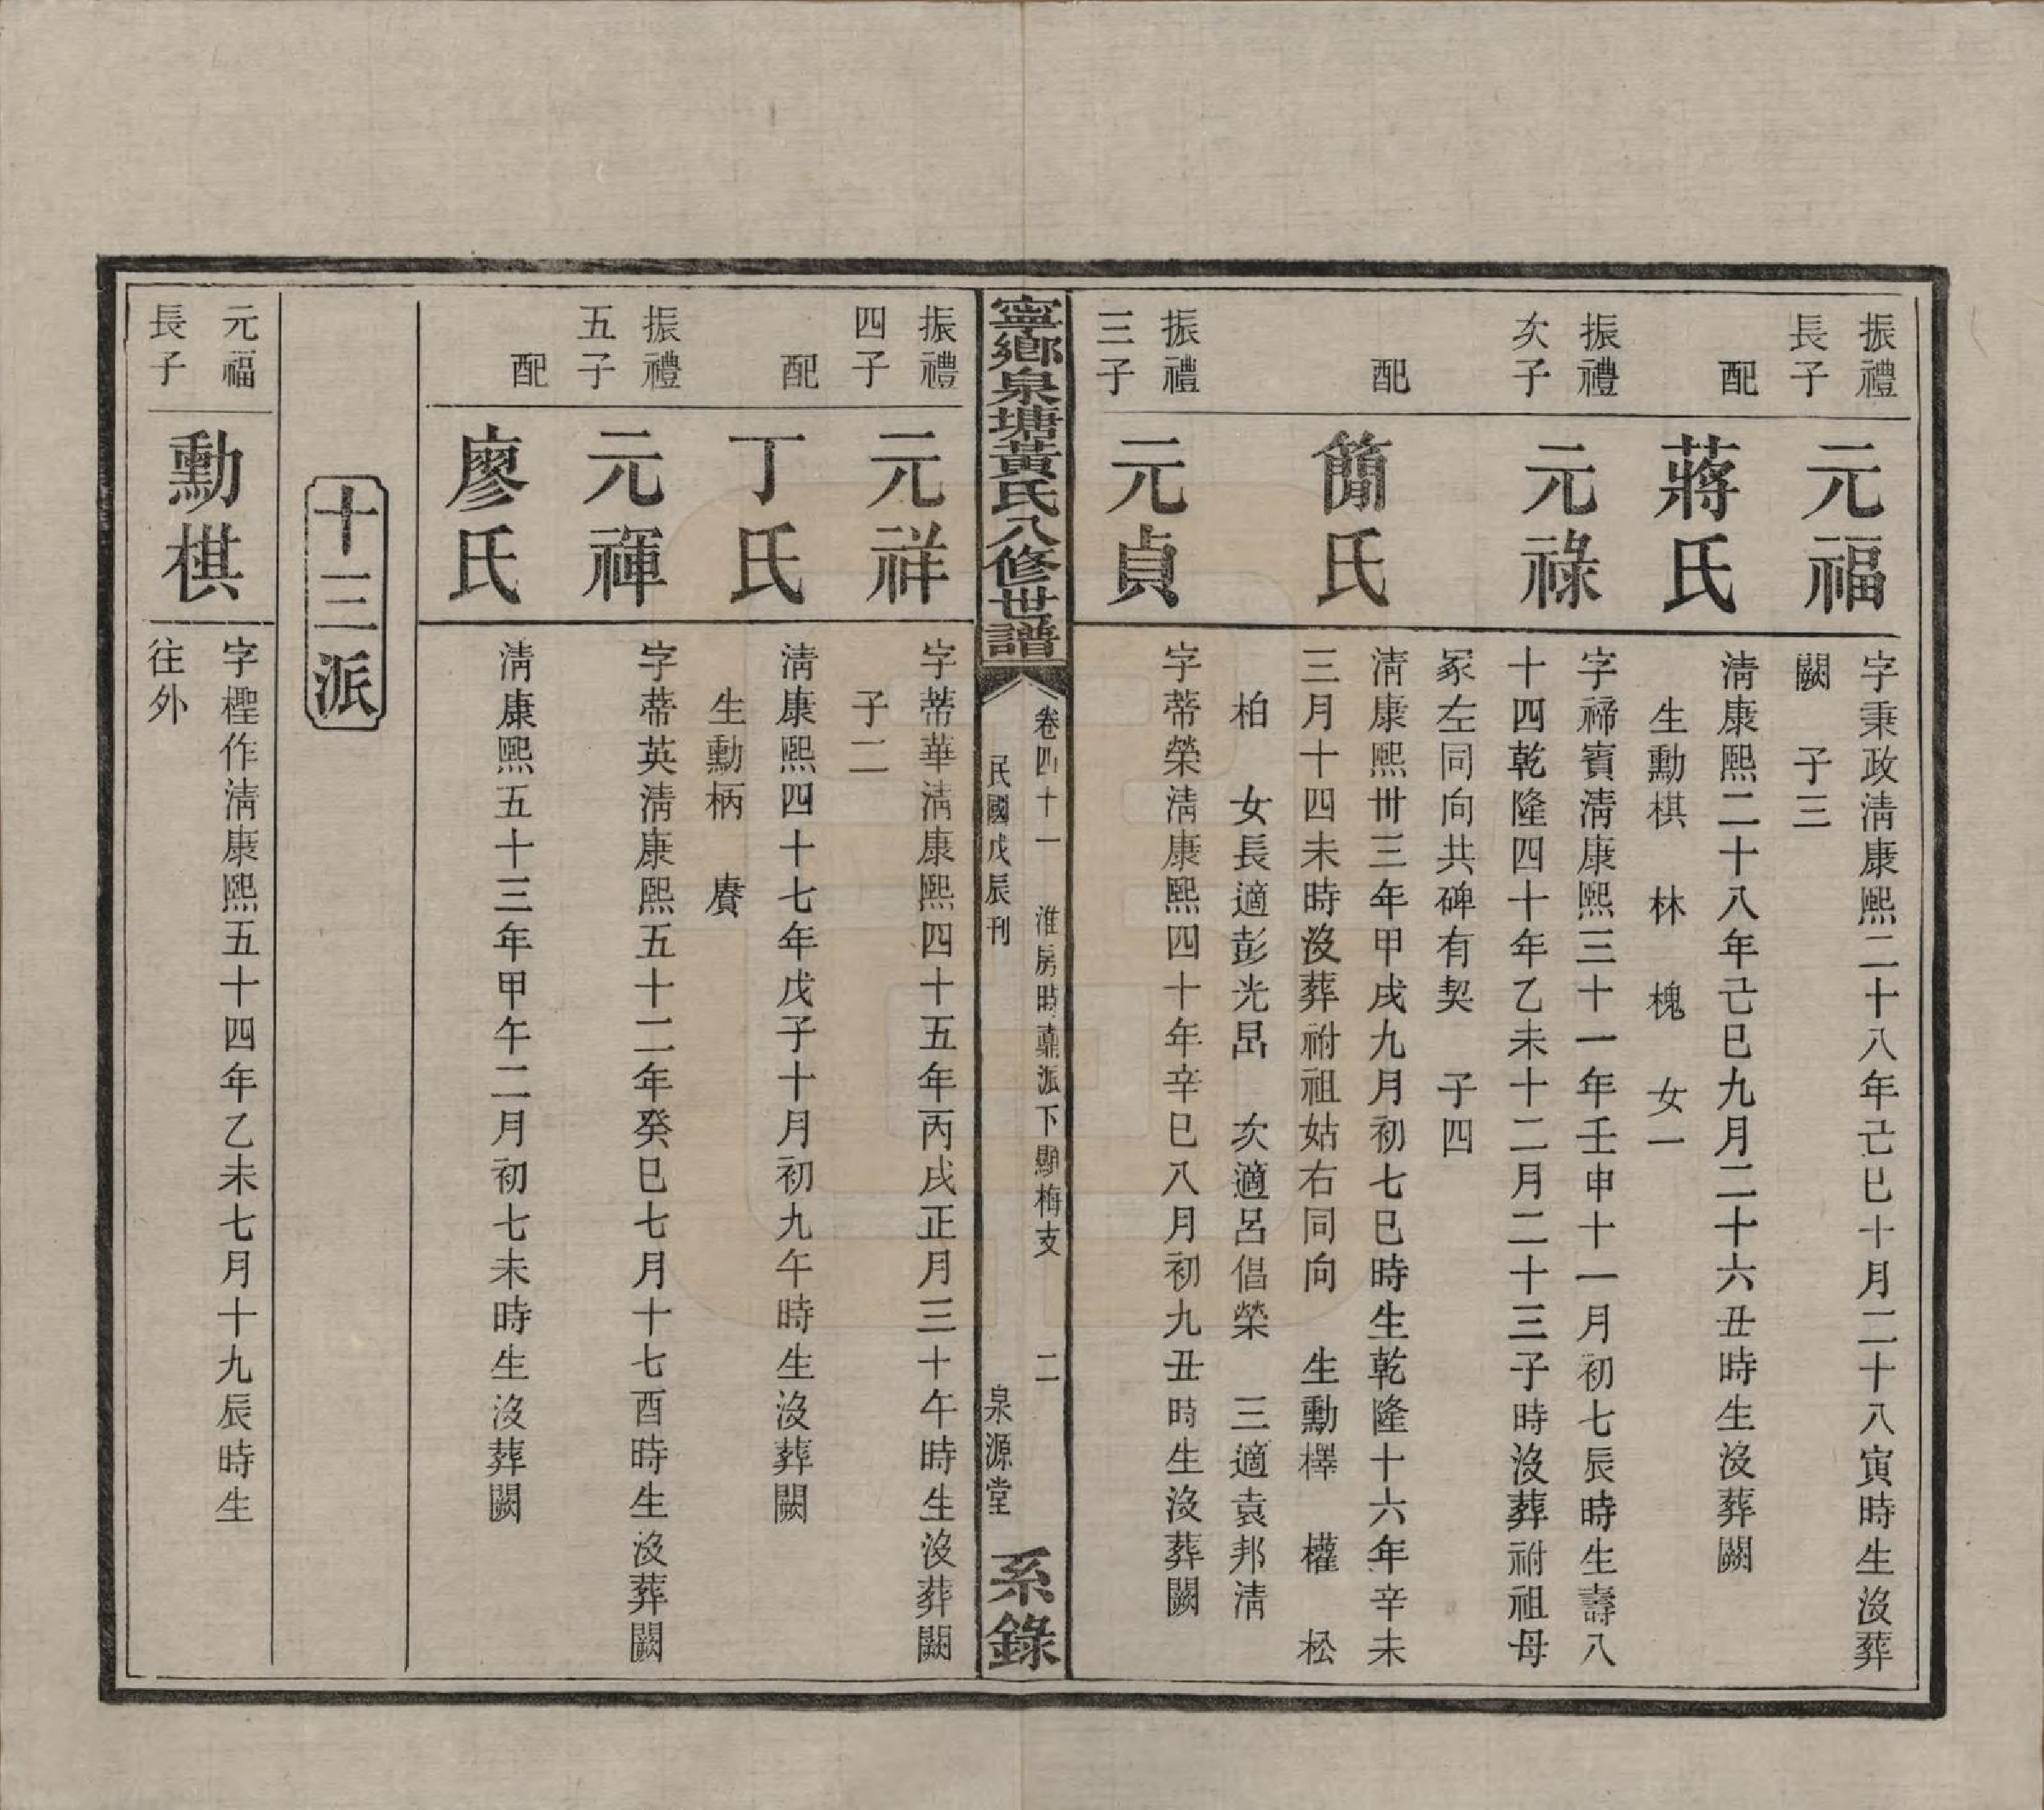 振禮
長子
元福
字秉政淸康熙二十八年己巳十月二十八寅時生沒葬
闕　子三
配
蔣氏
淸康熙二十八年己巳九月二十六丑時生沒葬闕
生勳棋　林　槐　女一
振禮
次子
元祿
字禘賓淸康熙三十一年壬申十一月初七辰時生壽八
十四乾隆四十年乙未十二月二十三子時沒葬祔祖母
冢左同向共碑有契　子四
配
簡氏
淸康熙卅三年甲戌九月初七巳時生乾隆十六年辛未
三月十四未時沒葬祔祖姑右同向　生勳檡　權　松
柏　女長適彭光昂　次適呂倡榮　三適袁邦淸
振禮
三子
元貞
字蒂榮淸康熙四十年辛巳八月初九丑時生沒葬闕
寧鄉泉塘黃氏八修世譜
卷四十一　淮房時鼒派下顯梅支　二
民國戊辰刊　泉源堂
系錄
振禮
四子
元祥
字蒂華淸康熙四十五年丙戌正月三十午時生沒葬闕
子二
配
丁氏
淸康熙四十七年戊子十月初九午時生沒葬闕
生勳柄　賡
振禮
五子
元禈
字蒂英淸康熙五十二年癸巳七月十七酉時生沒葬闕
配
廖氏
淸康熙五十三年甲午二月初七未時生沒葬闕
十三派
元福
長子
勳棋
字樫作淸康熙五十四年乙未七月十九辰時生
往外